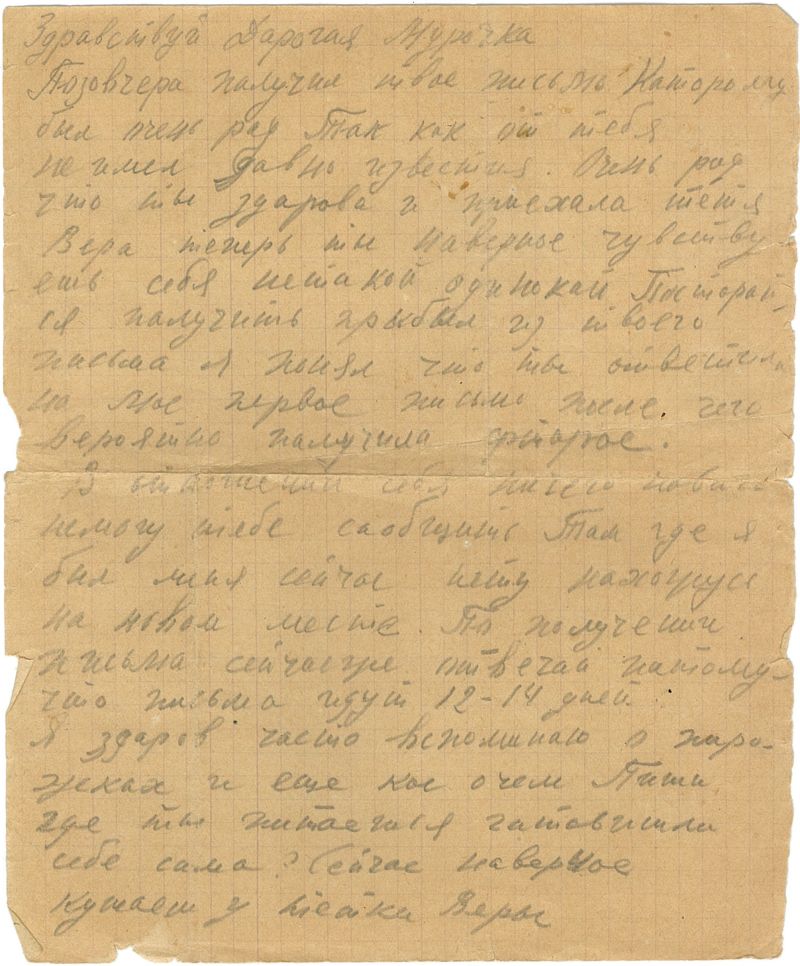 Здравствуй Дарогая Мурочка
Позовчера получил твое письмо Каторому
был очень рад Так как от тебя
не имел давно известия. Очень рад
что ты здарова и приехала тетя
Вера теперь ты наверное чувству
ешь себя нетакой одинокай Постарай-
ся палучить из твоего
письма я понял что ты ответила
на мое первое письмо после чего
вероятно палучила фторое.
В отношении себя ничего новаго
немогу тебе саобщить Там где я
был меня сейчас нету нахожусь
на новом месте. По получении
письма сейчасже отвечай патому-
что письма идут 12-14 дней.
Я здаров часто вспоминаю о пиро-
жках и еще кое очем Пиши
где ты питаешься гатовишли
себе сама? Сейчас наверное
кушаеш у тетки Веры